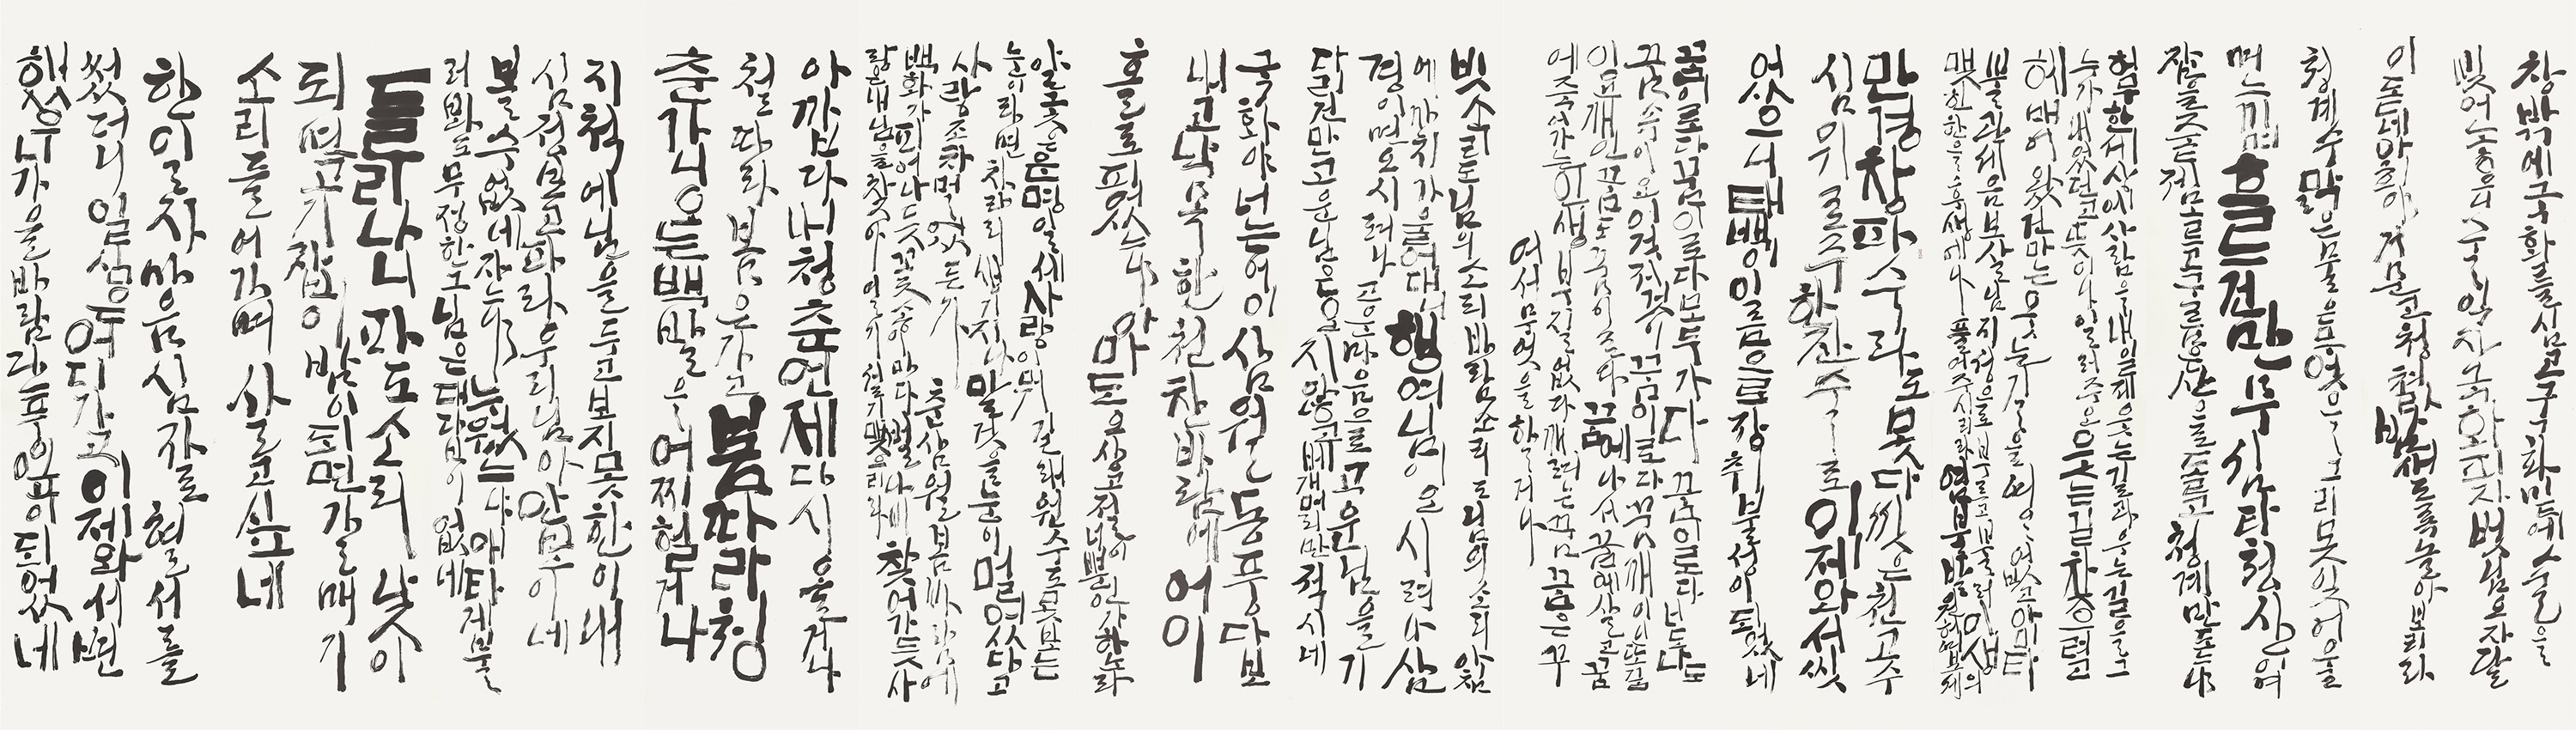 창밖에국화를심고국화밑에술을
빚어놓으니술익자국화피자벗님오자달
이돋네아희야거문고청쳐라밤새도록놀아보리라
청계수맑은물은무엇을그리못잊어울
며느끼며흐르건만무심타청산이여
잠을줄은제모르고구름은산으로돌고청계만도나
허무한세상에사람을내일제웃는길과우는길을그
누가내었던고뜻이나일러주오웃는길찾으려고
헤매어왔건만은웃는길은영영없고아미타
불관세음보살님지성으로부르고불러이생의
맺힌한을후생에나풀어주시라염불발원허보세
만경창파수라도못다씻은천고수
심위로주한잔주로이제와서씻
었으니태백이이름으로장취불성이되었네
꿈이로다꿈이로다모두가다꿈이로다너도나도
꿈속이요이것저것이꿈이로다꿈깨이니또꿈
이요깨인꿈도꿈이로다꿈에나서꿈에살고꿈
에죽어가는인생부질없다깨려는꿈꿈은꾸
어서무엇을할거나
빗소리도님의소리바람소리도님의소리아침
에까치가울어대니행여님이오시려나삼
경이면오시려나고운마음으로고운님을기
다리건만고운님은오지않고베갯머리만적시네
국화야너는어이삼월동풍다보
내고낙목한천찬바람에어이
홀로피었느냐아마도오상고절이너뿐인가하노라
얄궂은운명일세사랑이뭐길래원수도못보는
눈이라면차라리생기지나말것을눈이멀었다고
사랑조차멀었든가춘삼월봄바람에
백화가피어나듯꽃송이마다벌나비찾어가듯사
랑은내님을찾아얼기설기맺으리라
아깝다내청춘언제다시올거나
철따라봄은가고봄따라청
춘가니오는백발을어찌헐거나
지척에님을두고보지못한이내
심정보고파라우리님아안보이네
볼수없네자느냐누웠느냐애타게불
러봐도무정한그님은대답이없네
들리나니파도소리낮이
되면고기잡이밤이되면갈매기
소리들어가며살고싶네
한일자마음심자로혈서를
썼더니일심은어디가고이제와서변
했는가가을바람단풍잎이되었네